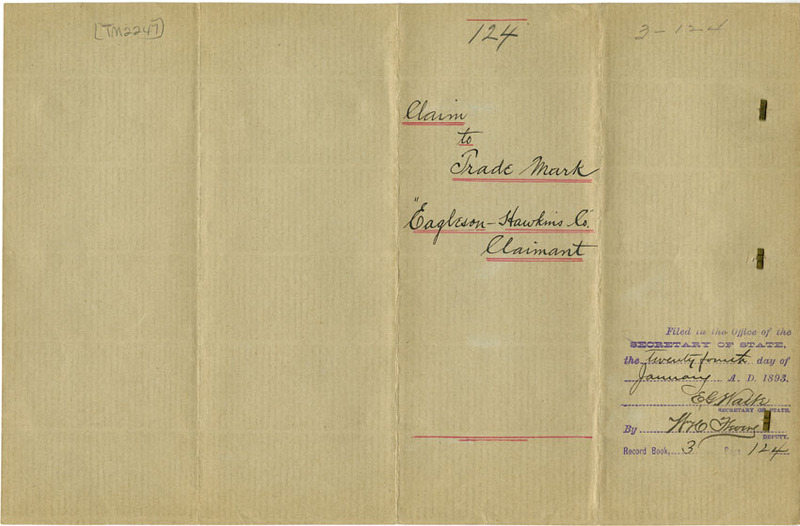 [TM2247]
124
Claim
to
Trade Mark
"Eagleson-Hawkins Co."
Claimant
3-124
Filed in the Office of the
SECRETARY OF STATE,
the twenty fourth day of
January A. D. 1893.
E G Waite
SECRETARY OF STATE.
By
DEPUTY.
Record Book, 3 Page 124